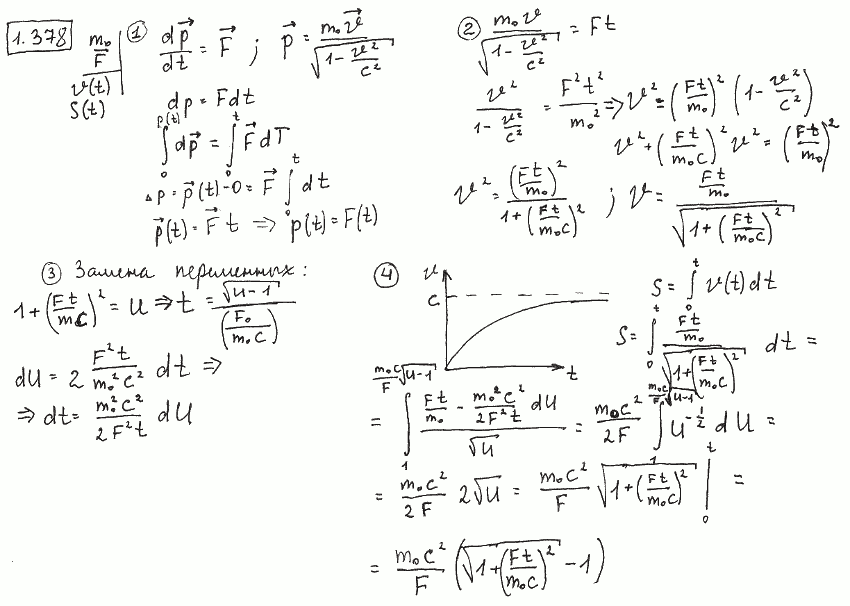 1.378
m₀
F
v(t)
S(t)
① dp⃗/dt = F⃗ ; p⃗ = m₀v⃗/√(1 - v²/c²)
dp = Fdt
∫₀^{p(t)} dp⃗ = ∫₀^t F⃗ dT
Δp = p⃗(t) - 0 = F⃗ ∫₀^t dt
p⃗(t) = F⃗ t ⇒ p(t) = F(t)
② m₀v/√(1 - v²/c²) = Ft
v²/(1 - v²/c²) = F²t²/m₀² ⇒ v² = (Ft/m₀)² (1 - v²/c²)
v² + (Ft/m₀c)² v² = (Ft/m₀)²
v² = (Ft/m₀)²/(1 + (Ft/m₀c)²) ; v = (Ft/m₀)/√(1 + (Ft/m₀c)²)
③ Замена переменных:
1 + (Ft/m₀c)² = u ⇒ t = √(u-1)/(F₀/m₀c)
du = 2 F²t/(m₀²c²) dt ⇒
⇒ dt = m₀²c²/(2F²t) du
④ v
c
t
S = ∫₀^t v(t) dt
S = ∫₀^t (Ft/m₀)/√(1 + (Ft/m₀c)²) dt =
= ∫₁^{m₀c/F √(u-1)} (Ft/m₀ - m₀²c²/(2F²t) du)/√u = m₀c²/2F ∫₁^{m₀c/F √(u-1)} u^{-1/2} du =
= m₀c²/2F 2√u = m₀c²/F √(1 + (Ft/m₀c)²) |₀^t =
= m₀c²/F (√(1 + (Ft/m₀c)²) - 1)